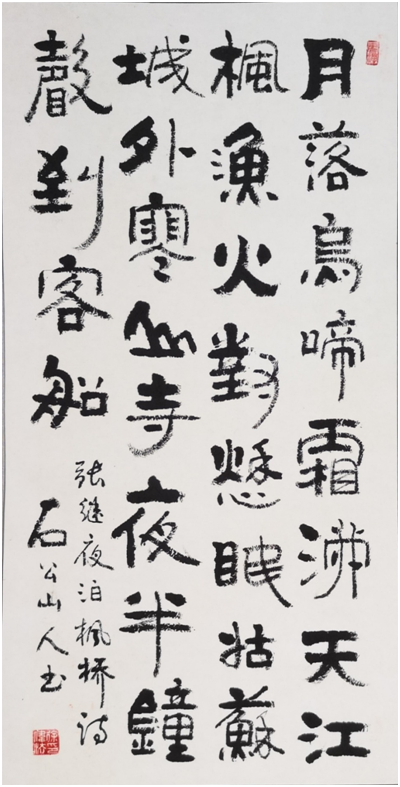 月落烏啼霜滿天江
楓漁火對愁眠姑蘇
城外寒山寺夜半鐘
聲到客船
张继夜泊枫桥诗
石公山人书